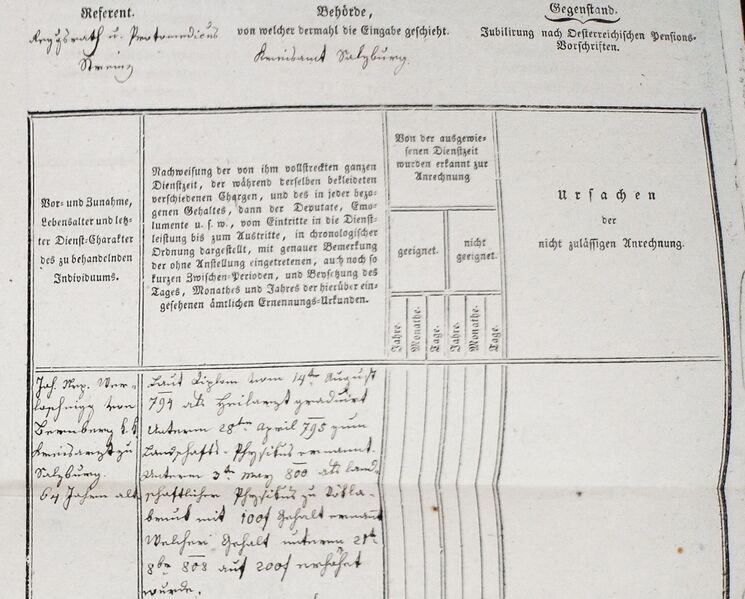 Referent.
Regгsrath u. Protomedicus
Streinz
Behörde,
von welcher dermahl die Eingabe geschieht.
Kreisamt Salzburg.
Gegenstand.
Jubilirung nach Oesterreichischen Pensions-
Vorschriften.
Vor- und Zunahme,
Lebensalter und letz-
ter Dienst-Charakter
des zu behandelnden
Individuums.
Nachweisung der von ihm vollstreckten ganzen
Dienstzeit, der während derselben bekleideten
verschiedenen Chargen, und des in jeder bezo-
genen Gehaltes, dann der Deputate, Emo-
lumente u. s. w., vom Eintritte in die Dienst-
leistung bis zum Austritte, in chronologischer
Ordnung dargestellt, mit genauer Bemerkung
der ohne Anstellung eingetretenen, auch noch so
kurzen Zwischen-Perioden, und Beysetzung des
Tages, Monathes und Jahres der hierüber ein-
gesehenen ämtlichen Ernennungs-Urkunden.
Von der ausgewie-
senen Dienstzeit
wurden erkannt zur
Anrechnung
geeignet.
nicht
geeignet.
Jahre.
Monathe.
Tage.
Jahre.
Monathe.
Tage.
Ursachen
der
nicht zulässigen Anrechnung.
Joh. Nep. Wer-
loschnigg von
Bernberg k.k.
Kreisarzt zu
Salzburg.
64 Jahren alt
Laut Diplom vom 14ten August
794 als Heilarzt graduirt
Unterm 28ten April 795 zum
Landschafts-Physikus ernannt.
Unterm 3ten May 800 als land-
schaftlicher Physikus zu Vökla-
bruk mit 100f Gehalt ernannt
Welcher Gehalt unterm 21ten
8ber 808 auf 200f erhöhet
wurde.